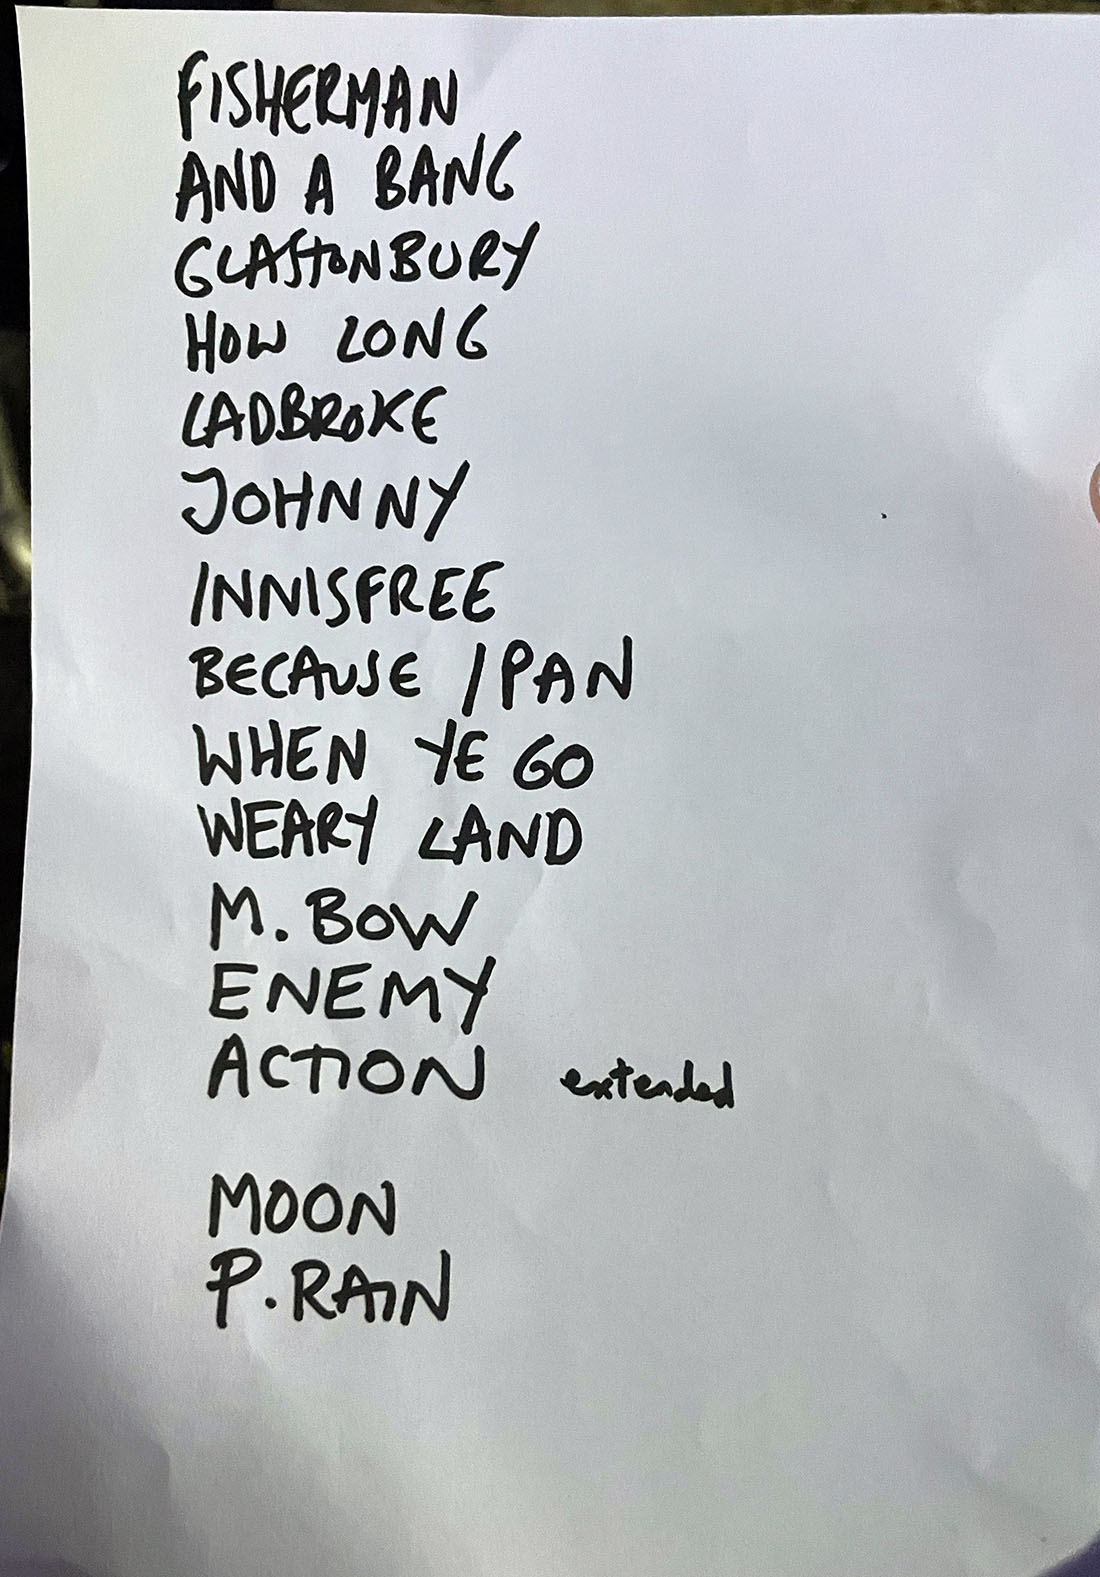 FISHERMAN
AND A BANG
GLAStONBURY
HOW LONG
LADBROKE
JOHNNY
INNISFREE
BECAUSE / PAN
WHEN YE GO
WEARY LAND
M. BOW
ENEMY
ACTION extended
MOON
P. RAIN